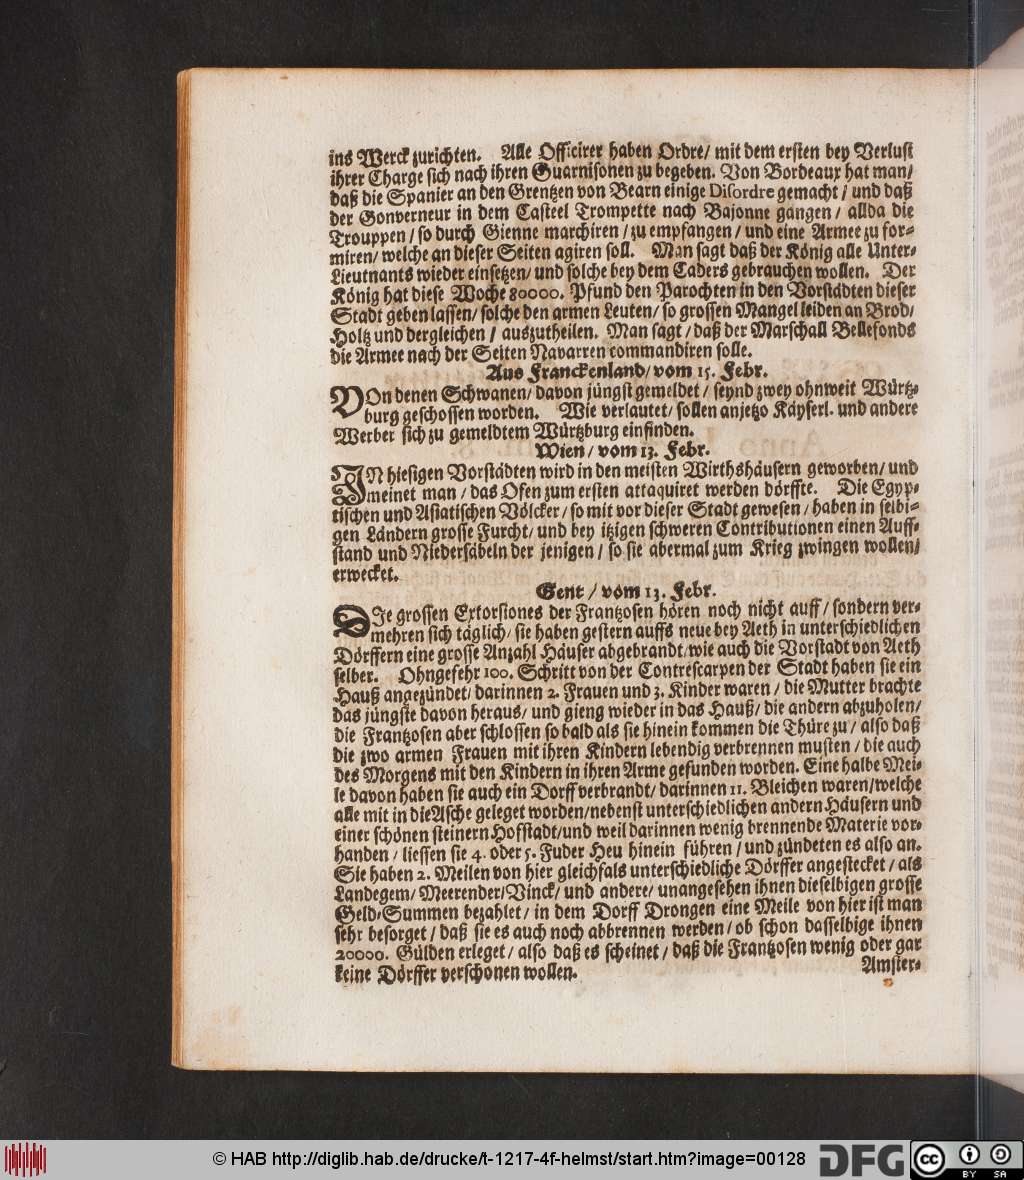 ins Werck zurichten. Alle Officirer haben Ordre/ mit dem ersten bey Verlust
ihrer Charge sich nach ihren Guarnisonen zu begeben. Von Bordeaux hat man/
daß die Spanier an den Grentzen von Bearn einige Disordre gemacht / und daß
der Gonverneur in dem Casteel Trompette nach Bajonne gangen / allda die
Trouppen / so durch Gienne marchiren / zu empfangen / und eine Armee zu for-
miren/ welche an dieser Seiten agiren soll. Man sagt daß der König alle Unter-
Lieutnants wieder einsetzen/ und solche bey dem Caders gebrauchen wollen. Der
König hat diese Woche 80000. Pfund den Parochten in den Vorstädten dieser
Stadt geben lassen/ solche den armen Leuten/ so grossen Mangel leiden an Brod/
Holtz und dergleichen / auszutheilen. Man sagt / daß der Marschall Bellefonds
die Armee nach der Seiten Navarren commandiren solle.
Aus Franckenland/ vom 15. Febr.
VOn denen Schwanen/ davon jüngst gemeldet / seynd zwey ohnweit Würtz-
burg geschossen worden. Wie verlautet/ sollen anjetzo Käyserl. und andere
Werber sich zu gemeldtem Würtzburg einfinden.
Wien / vom 13. Febr.
IN hiesigen Vorstädten wird in den meisten Wirthshäusern geworben/ und
meinet man / das Ofen zum ersten attaquiret werden dörffte. Die Egyp-
tischen und Asiatischen Völcker / so mit vor dieser Stadt gewesen / haben in selbi-
gen Ländern grosse Furcht/ und bey itzigen schweren Contributionen einen Auff-
stand und Niedersäbeln der jenigen / so sie abermal zum Krieg zwingen wollen/
erwecket.
Gent / vom 13. Febr.
DIe grossen Extorsiones der Frantzosen hören noch nicht auff / sondern ver-
mehren sich täglich/ sie haben gestern auffs neue bey Aeth in unterschiedlichen
Dörffern eine grosse Anzahl Häuser abgebrandt/ wie auch die Vorstadt von Aeth
selber. Ohngefehr 100. Schritt von der Contrescarpen der Stadt haben sie ein
Hauß angezündet/ darinnen 2. Frauen und 3. Kinder waren / die Mutter brachte
das jüngste davon heraus/ und gieng wieder in das Hauß/ die andern abzuholen/
die Frantzosen aber schlossen so bald als sie hinein kommen die Thüre zu / also daß
die zwo armen Frauen mit ihren Kindern lebendig verbrennen musten / die auch
des Morgens mit den Kindern in ihren Arme gefunden worden. Eine halbe Mei-
le davon haben sie auch ein Dorff verbrandt/ darinnen 11. Bleichen waren/welche
alle mit in dieAsche geleget worden/nebenst unterschiedlichen andern Häusern und
einer schönen steinern Hofstadt/und weil darinnen wenig brennende Materie vor-
handen / liessen sie 4. oder 5. Fuder Heu hinein führen / und zündeten es also an.
Sie haben 2. Meilen von hier gleichfals unterschiedliche Dörffer angestecket / als
Landegem/ Meerender/ Vinck/ und andere/ unangesehen ihnen dieselbigen grosse
Geld-Summen bezahlet / in dem Dorff Drongen eine Meile von hier ist man
sehr besorget / daß sie es auch noch abbrennen werden / ob schon dasselbige ihnen
20000. Gülden erleget / also daß es scheinet / daß die Frantzosen wenig oder gar
keine Dörffer verschonen wollen.
Amster-
© HAB http://diglib.hab.de/drucke/t-1217-4f-helmst/start.htm?image=00128
DFG
cc
BY
SA